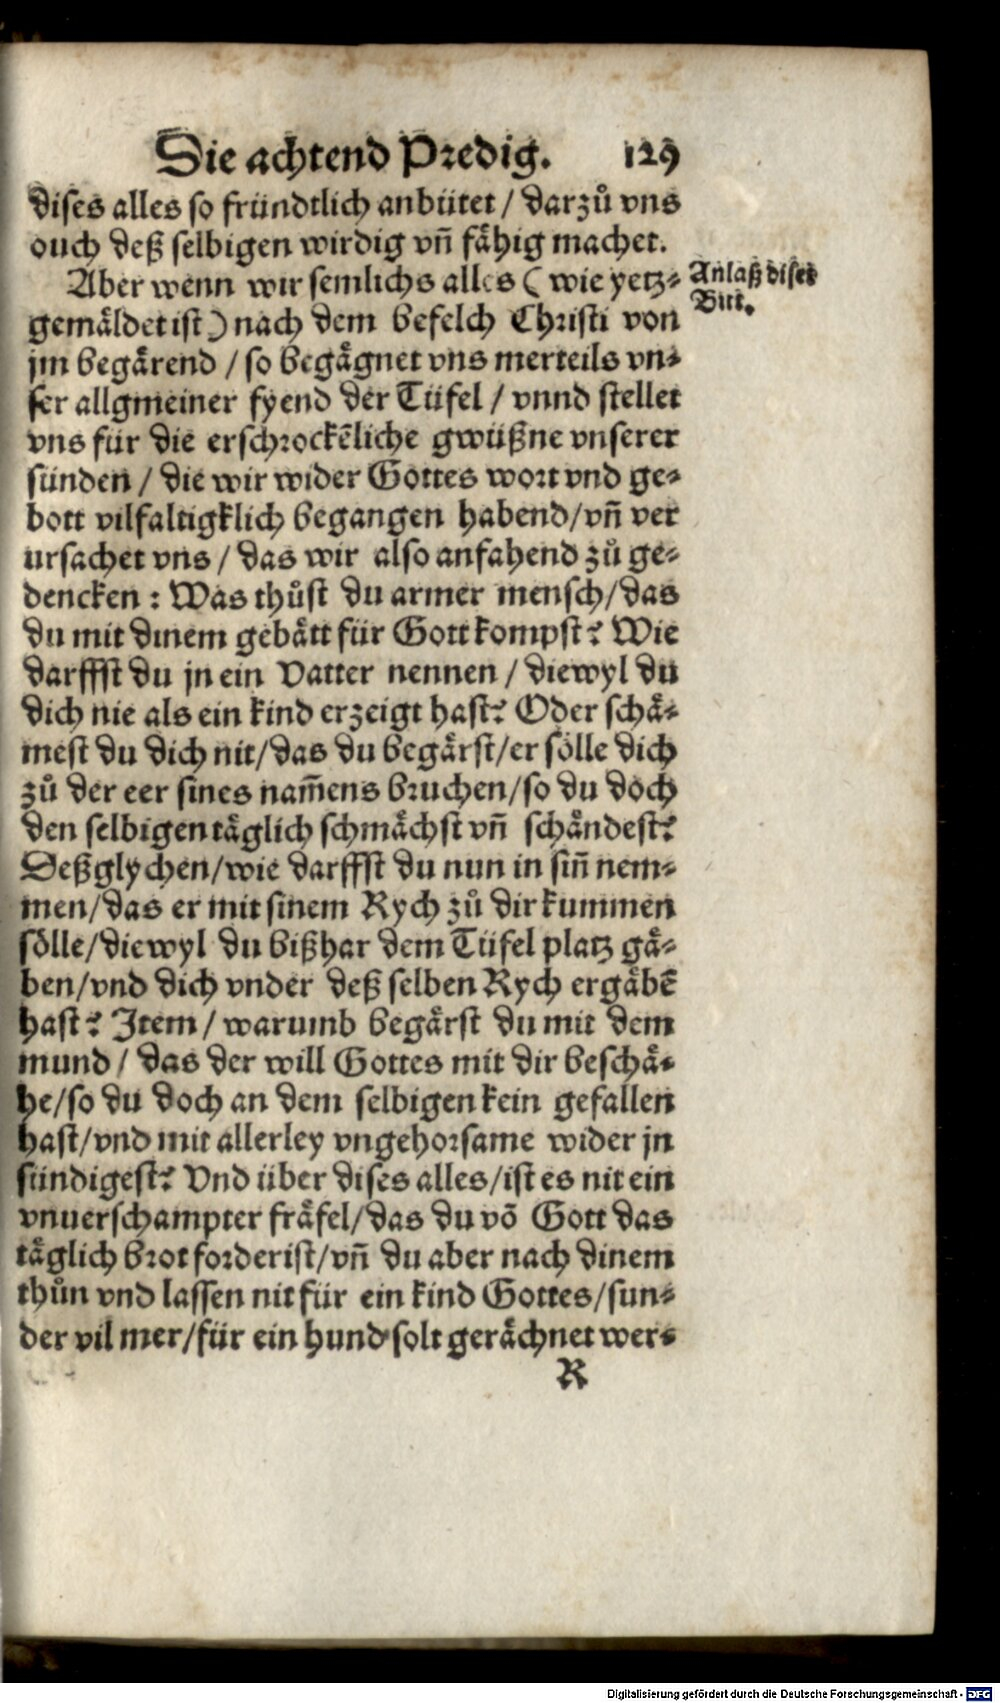 Die achtend Predig. 129
dises alles so fründtlich anbütet / darzů vns
ouch deß selbigen wirdig vñ fåhig machet.
Aber wenn wir semlichs alles ( wie yetz-
gemåldet ist ) nach dem befelch Christi von
jm begårend / so begågnet vns merteils vn-
ser allgmeiner fyend der Tüfel / vnnd stellet
vns für die erschrockẽliche gwüßne vnserer
sünden / die wir wider Gottes wort vnd ge-
bott vilfaltigklich begangen habend/vñ ver
ursachet vns / das wir also anfahend zů ge-
dencken : Was thůst du armer mensch/das
du mit dinem gebått für Gott kompst? Wie
darffst du jn ein Vatter nennen / diewyl du
dich nie als ein kind erzeigt hast? Oder schå-
mest du dich nit/das du begårst/er sölle dich
zů der eer sines nam̃ens bruchen/so du doch
den selbigen tåglich schmåchst vñ schåndest?
Deßglychen/wie darffst du nun in siñ nem-
men/das er mit sinem Rych zů dir kummen
sölle/diewyl du bißhar dem Tüfel platz gå-
ben/vnd dich vnder deß selben Rych ergåbẽ
hast? Item / warumb begårst du mit dem
mund / das der will Gottes mit dir beschå-
he/so du doch an dem selbigen kein gefallen
hast/vnd mit allerley vngehorsame wider jn
sündigest? Vnd über dises alles/ist es nit ein
vnuerschampter fråfel/das du võ Gott das
tåglich brot forderist/vñ du aber nach dinem
thůn vnd lassen nit für ein kind Gottes/sun-
der vil mer/für ein hund solt geråchnet wer-
R
Anlaß diser
Bitt.
Digitalisierung gefördert durch die Deutsche Forschungsgemeinschaft - DFG